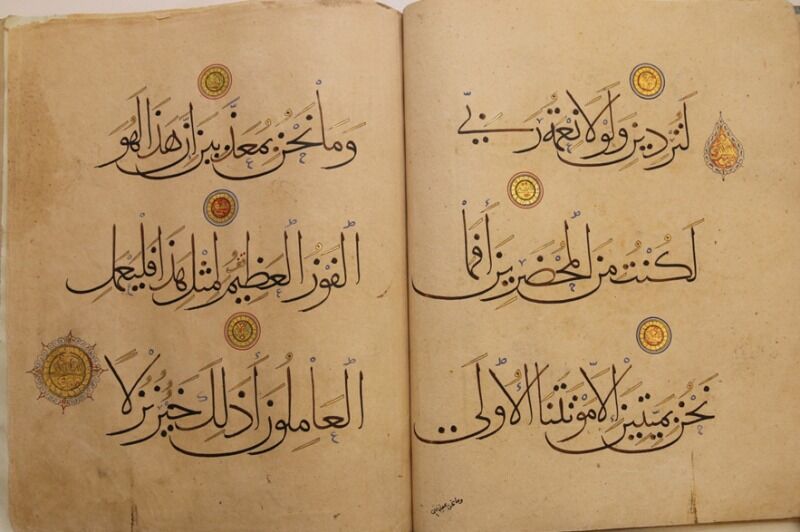 لَتُرْدِينِ وَلَوْلَا نِعْمَةُ رَبِّي
لَكُنْتُ مِنَ الْمُحْضَرِينَ أَفَمَا
نَحْنُ بِمَيِّتِينَ إِلَّا مَوْتَتَنَا الْأُولَى
وَمَا نَحْنُ بِمُعَذَّبِينَ إِنَّ هَذَا لَهُوَ
الْفَوْزُ الْعَظِيمُ لِمِثْلِ هَذَا فَلْيَعْمَلِ
الْعَامِلُونَ أَذَلِكَ خَيْرٌ نُزُلًا